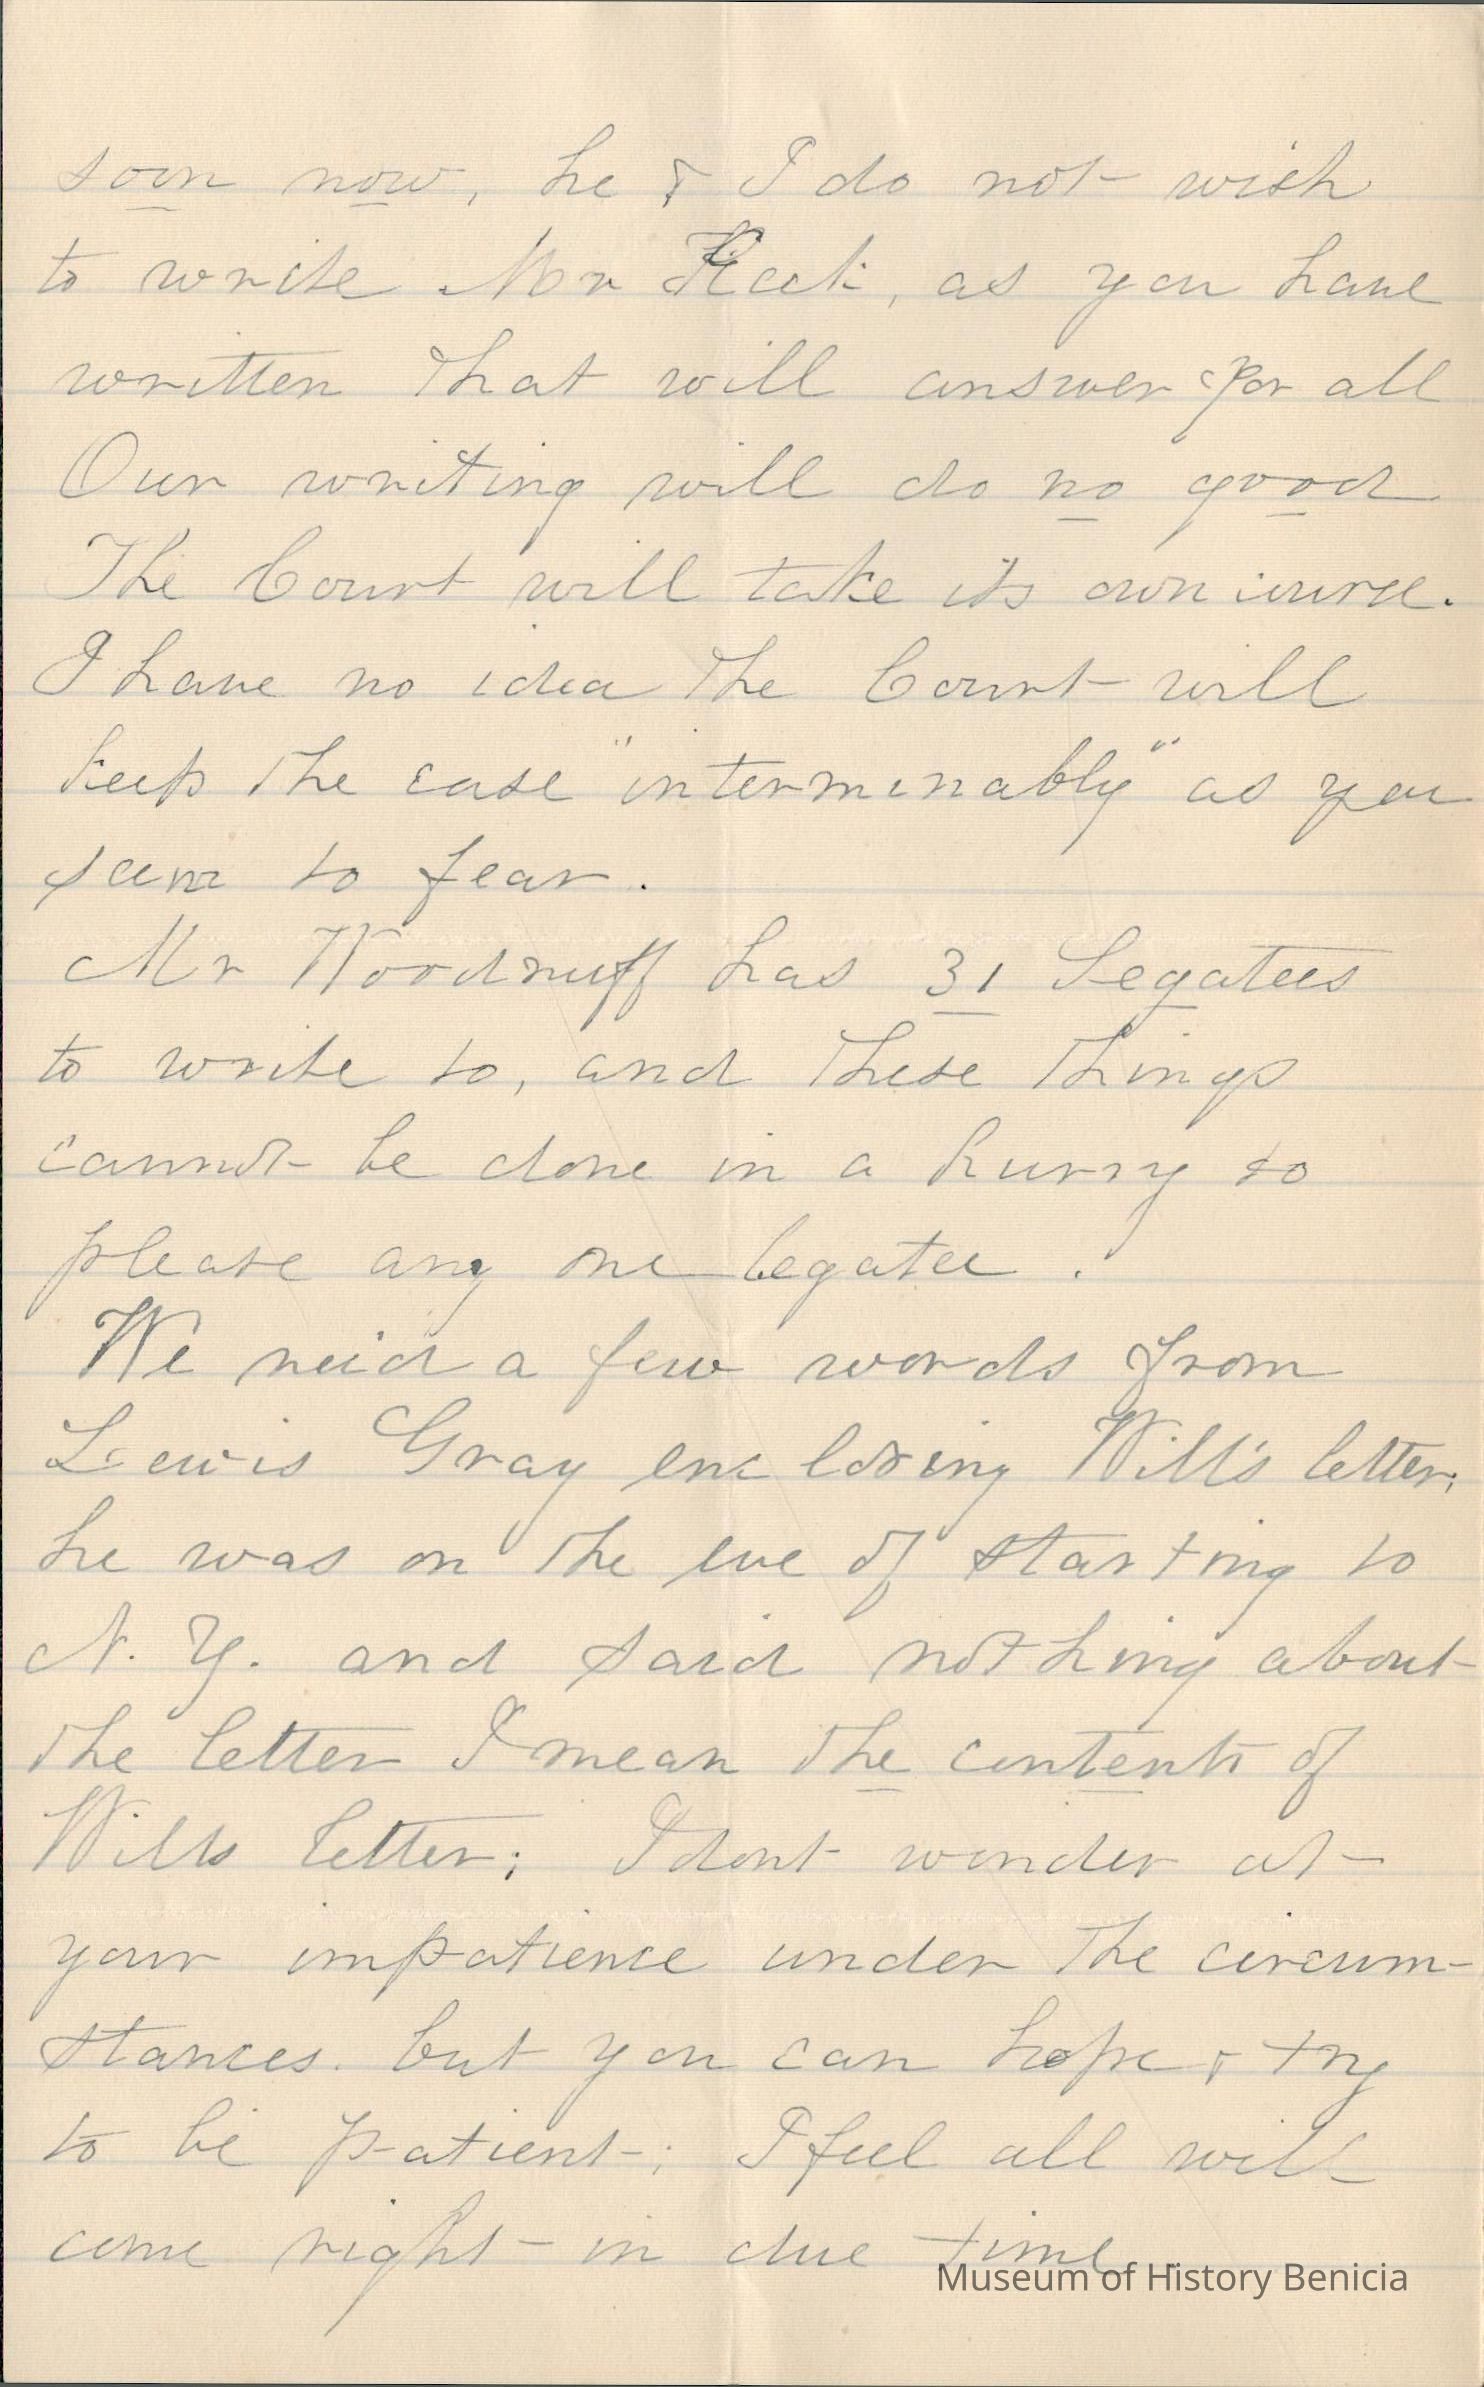 soon now, he & I do not wish
to write Mr as you have
written that will answer for all
Our writing will do no good
The Court will take its own course.
I have no idea the Court will
keep the case "interminably" as you
seem to fear.
Mr Woodruff has 31 Legatees
to write to, and these things
cannot be done in a hurry to
please any one legatee.
We recid a few words from
Lewis Gray enclosing Will's letter;
he was on the eve of starting to
N. Y. and said nothing about
the letter I mean the contents of
Wills letter; I dont wonder at
your impatience under the circum-
stances. but you can hope & try
to be patient; I feel all will
come right in due time
Museum of History Benicia